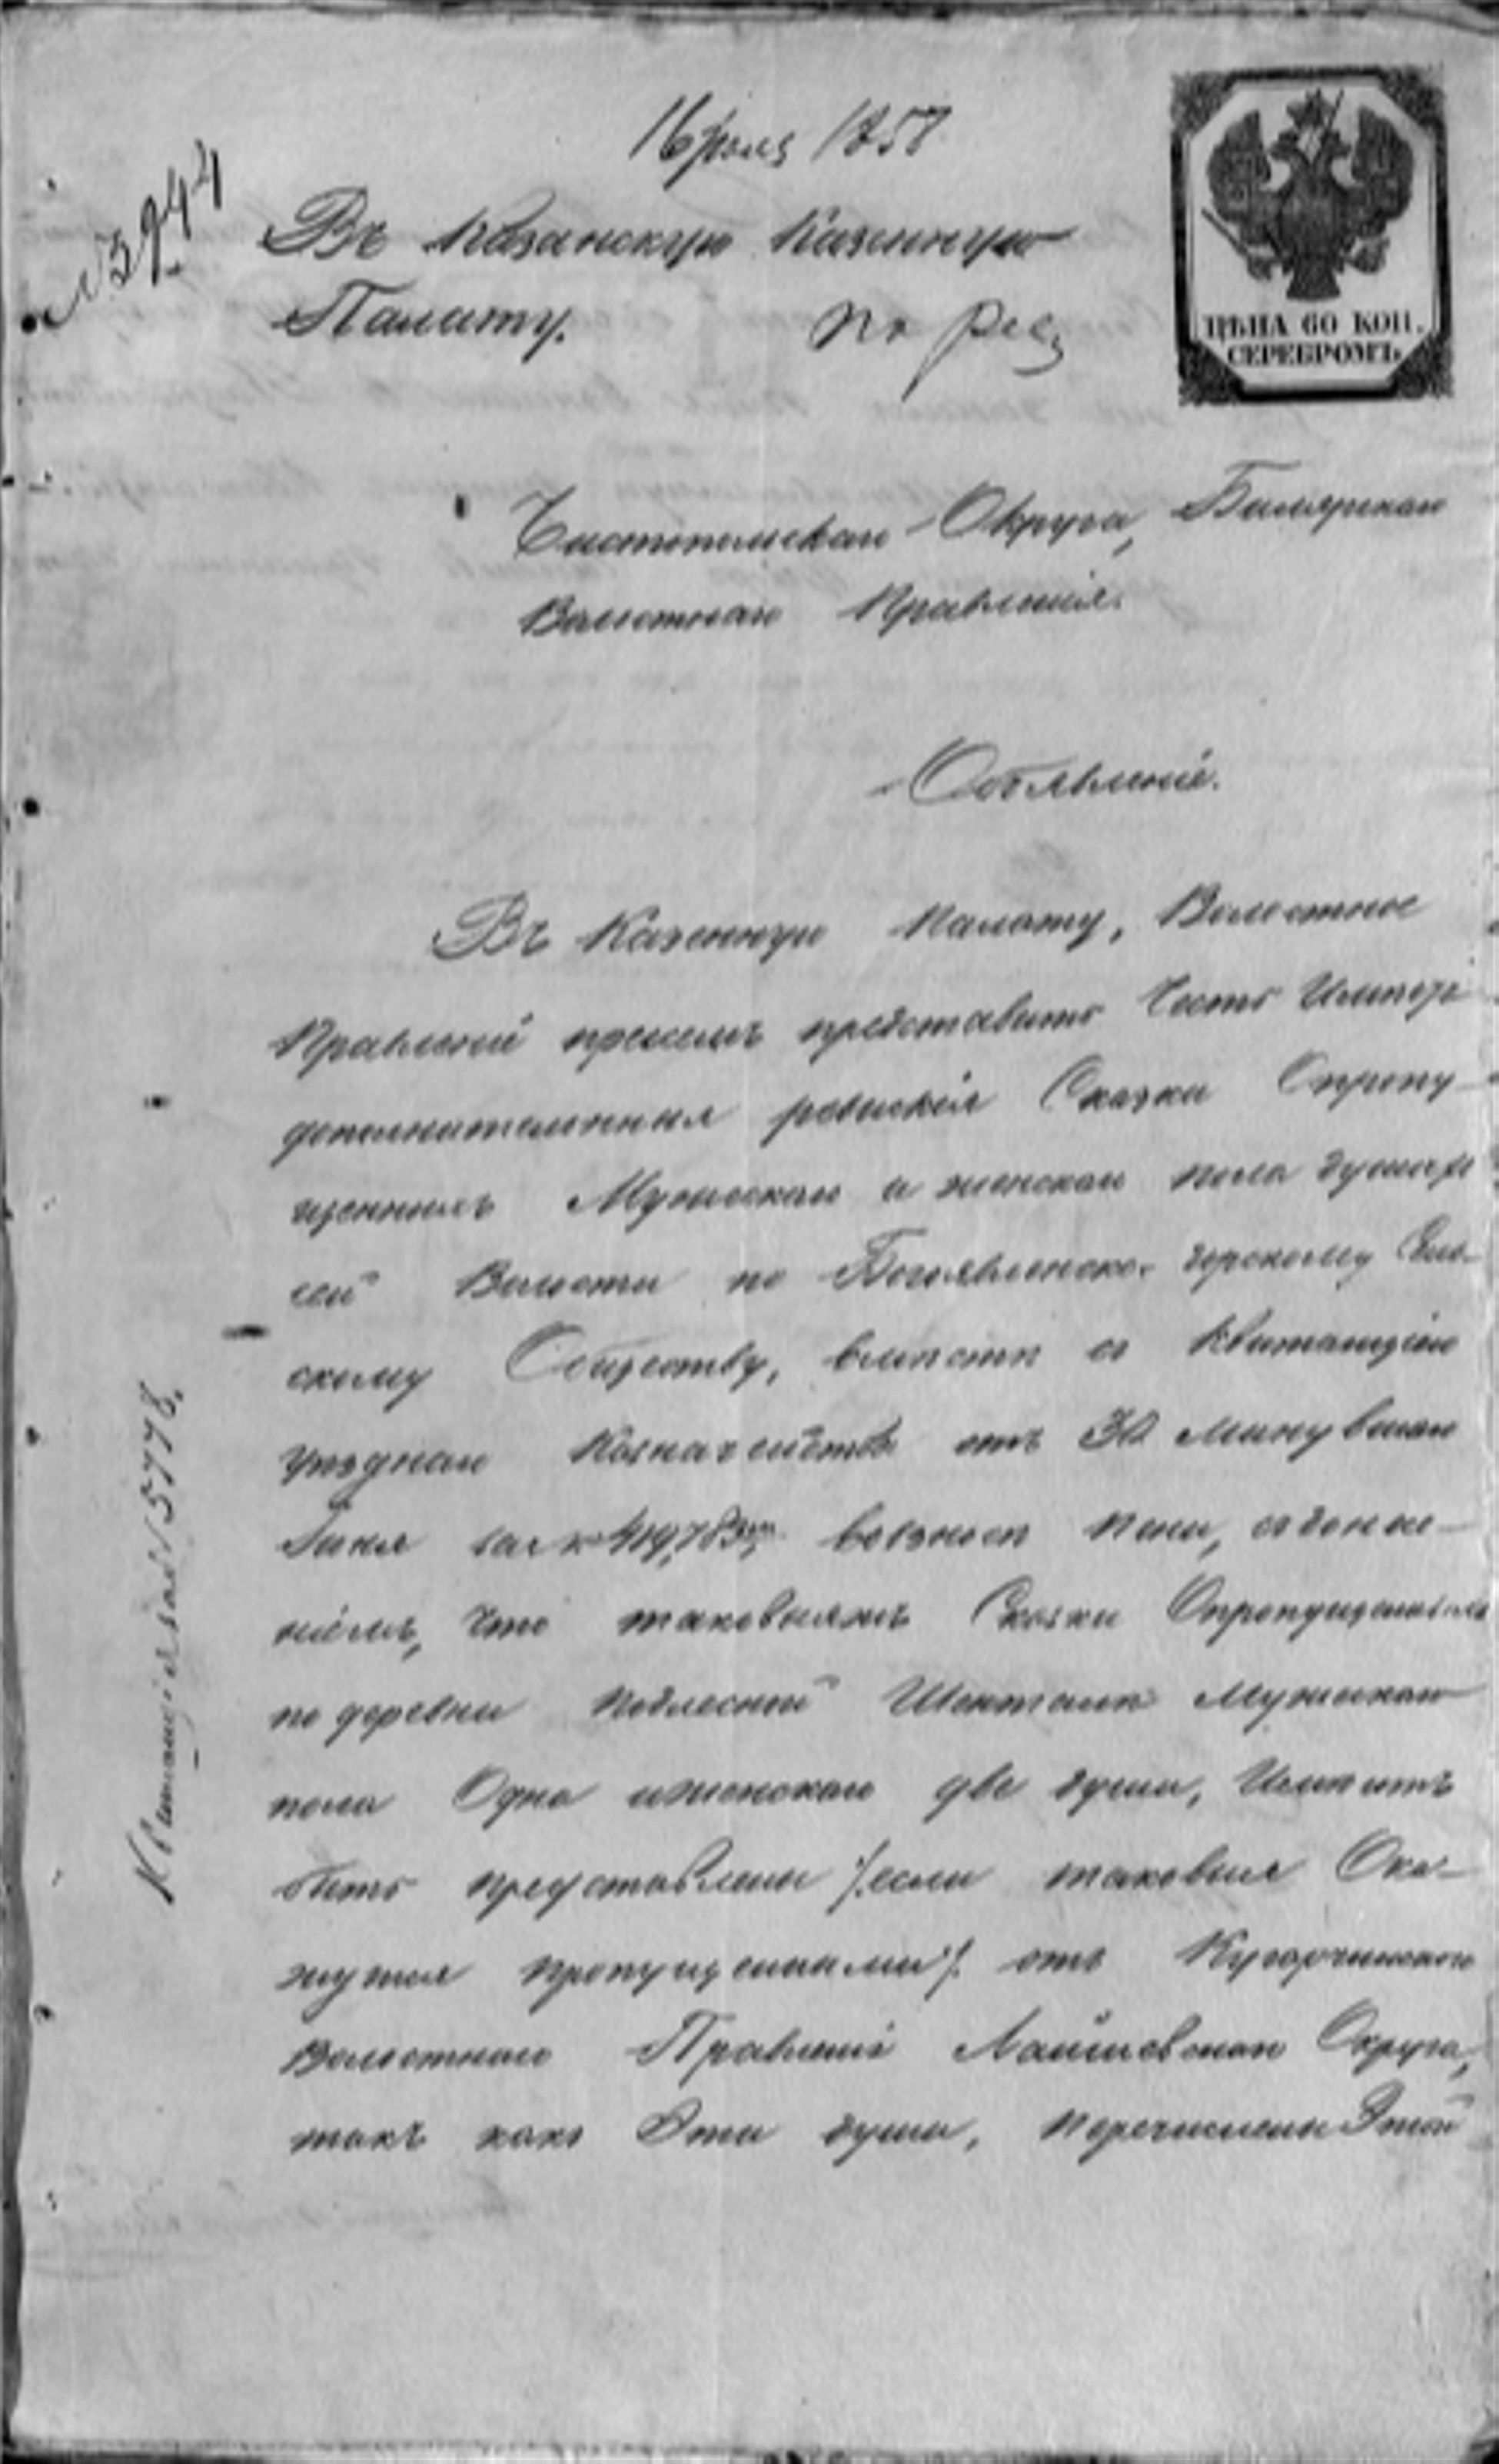 16 Июля 1858
№ 3944
Въ Казанскую Казенную
Палату.
По Рев;
ЦѢНА 60 КОП.
СЕРЕБРОМЪ
Чистопольскаго Округа, Билярскаго
Волостнаго Правленія.
Объявленіе.
Въ Казенную Палату, Волостное
Правленіе при семъ представить Честь Имѣетъ
дополнительныя ревизкія Сказки Опропу-
щенныхъ Мужескаго и женскаго пола душахъ
сей Волости по Богоявленско-горскому Сель-
скому Обществу, вмѣстѣ съ Квитанціею
уѣзднаго Казначейства отъ 30 минувшаго
Іюня за № 419, взносѣ пени, съ донесе-
ніемъ, что таковыяжъ Сказки Опропущенныхъ
по деревни Подлесной Шентале Мужескаго
пола Одна и женскаго две души, Имеютъ
быть представлены /.если таковыя Ока-
жутся пропущенными/. отъ Кугарчинскаго
Волостнаго Правленія Лаишевскаго Округа,
такъ какъ Эти души, перечислены Этой
Квитанція за № 15778.